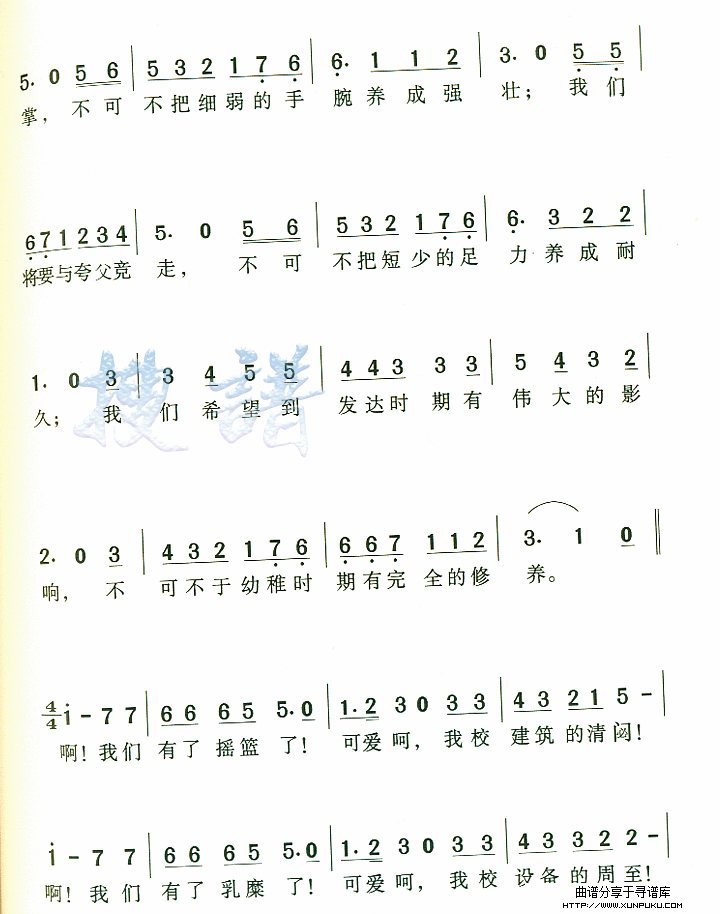 5· 0 5 6 | 5 3 2 1 7 6 | 6· 1 1 2 | 3· 0 5 5 |
掌，不可 不把细弱的手 腕养成强 壮；我们
6 7 1 2 3 4 | 5· 0 5 6 | 5 3 2 1 7 6 | 6· 3 2 2 |
将要与夸父竞 走，不可 不把短少的足 力养成耐
1· 0 3 | 3 4 5 5 | 4 4 3 3 3 | 5 4 3 2 |
久；我 们希望到 发达时期有 伟大的影
搜谱
2· 0 3 | 4 3 2 1 7 6 | 6 6 7 1 1 2 | 3· 1 0 ‖
响，不 可不于幼稚时 期有完全的修 养。
4/4 i - 7 7 | 6 6 6 5 5· 0 | 1· 2 3 0 3 3 | 4 3 2 1 5 - |
啊！我们 有了摇篮了！可爱呵，我校 建筑的清閟！
i - 7 7 | 6 6 6 5 5· 0 | 1· 2 3 0 3 3 | 4 3 3 2 2 - |
啊！我们 有了乳糜了！可爱呵，我校 设备的周至！
曲谱分享于寻谱库
HTTP://WWW.XUNPUKU.COM